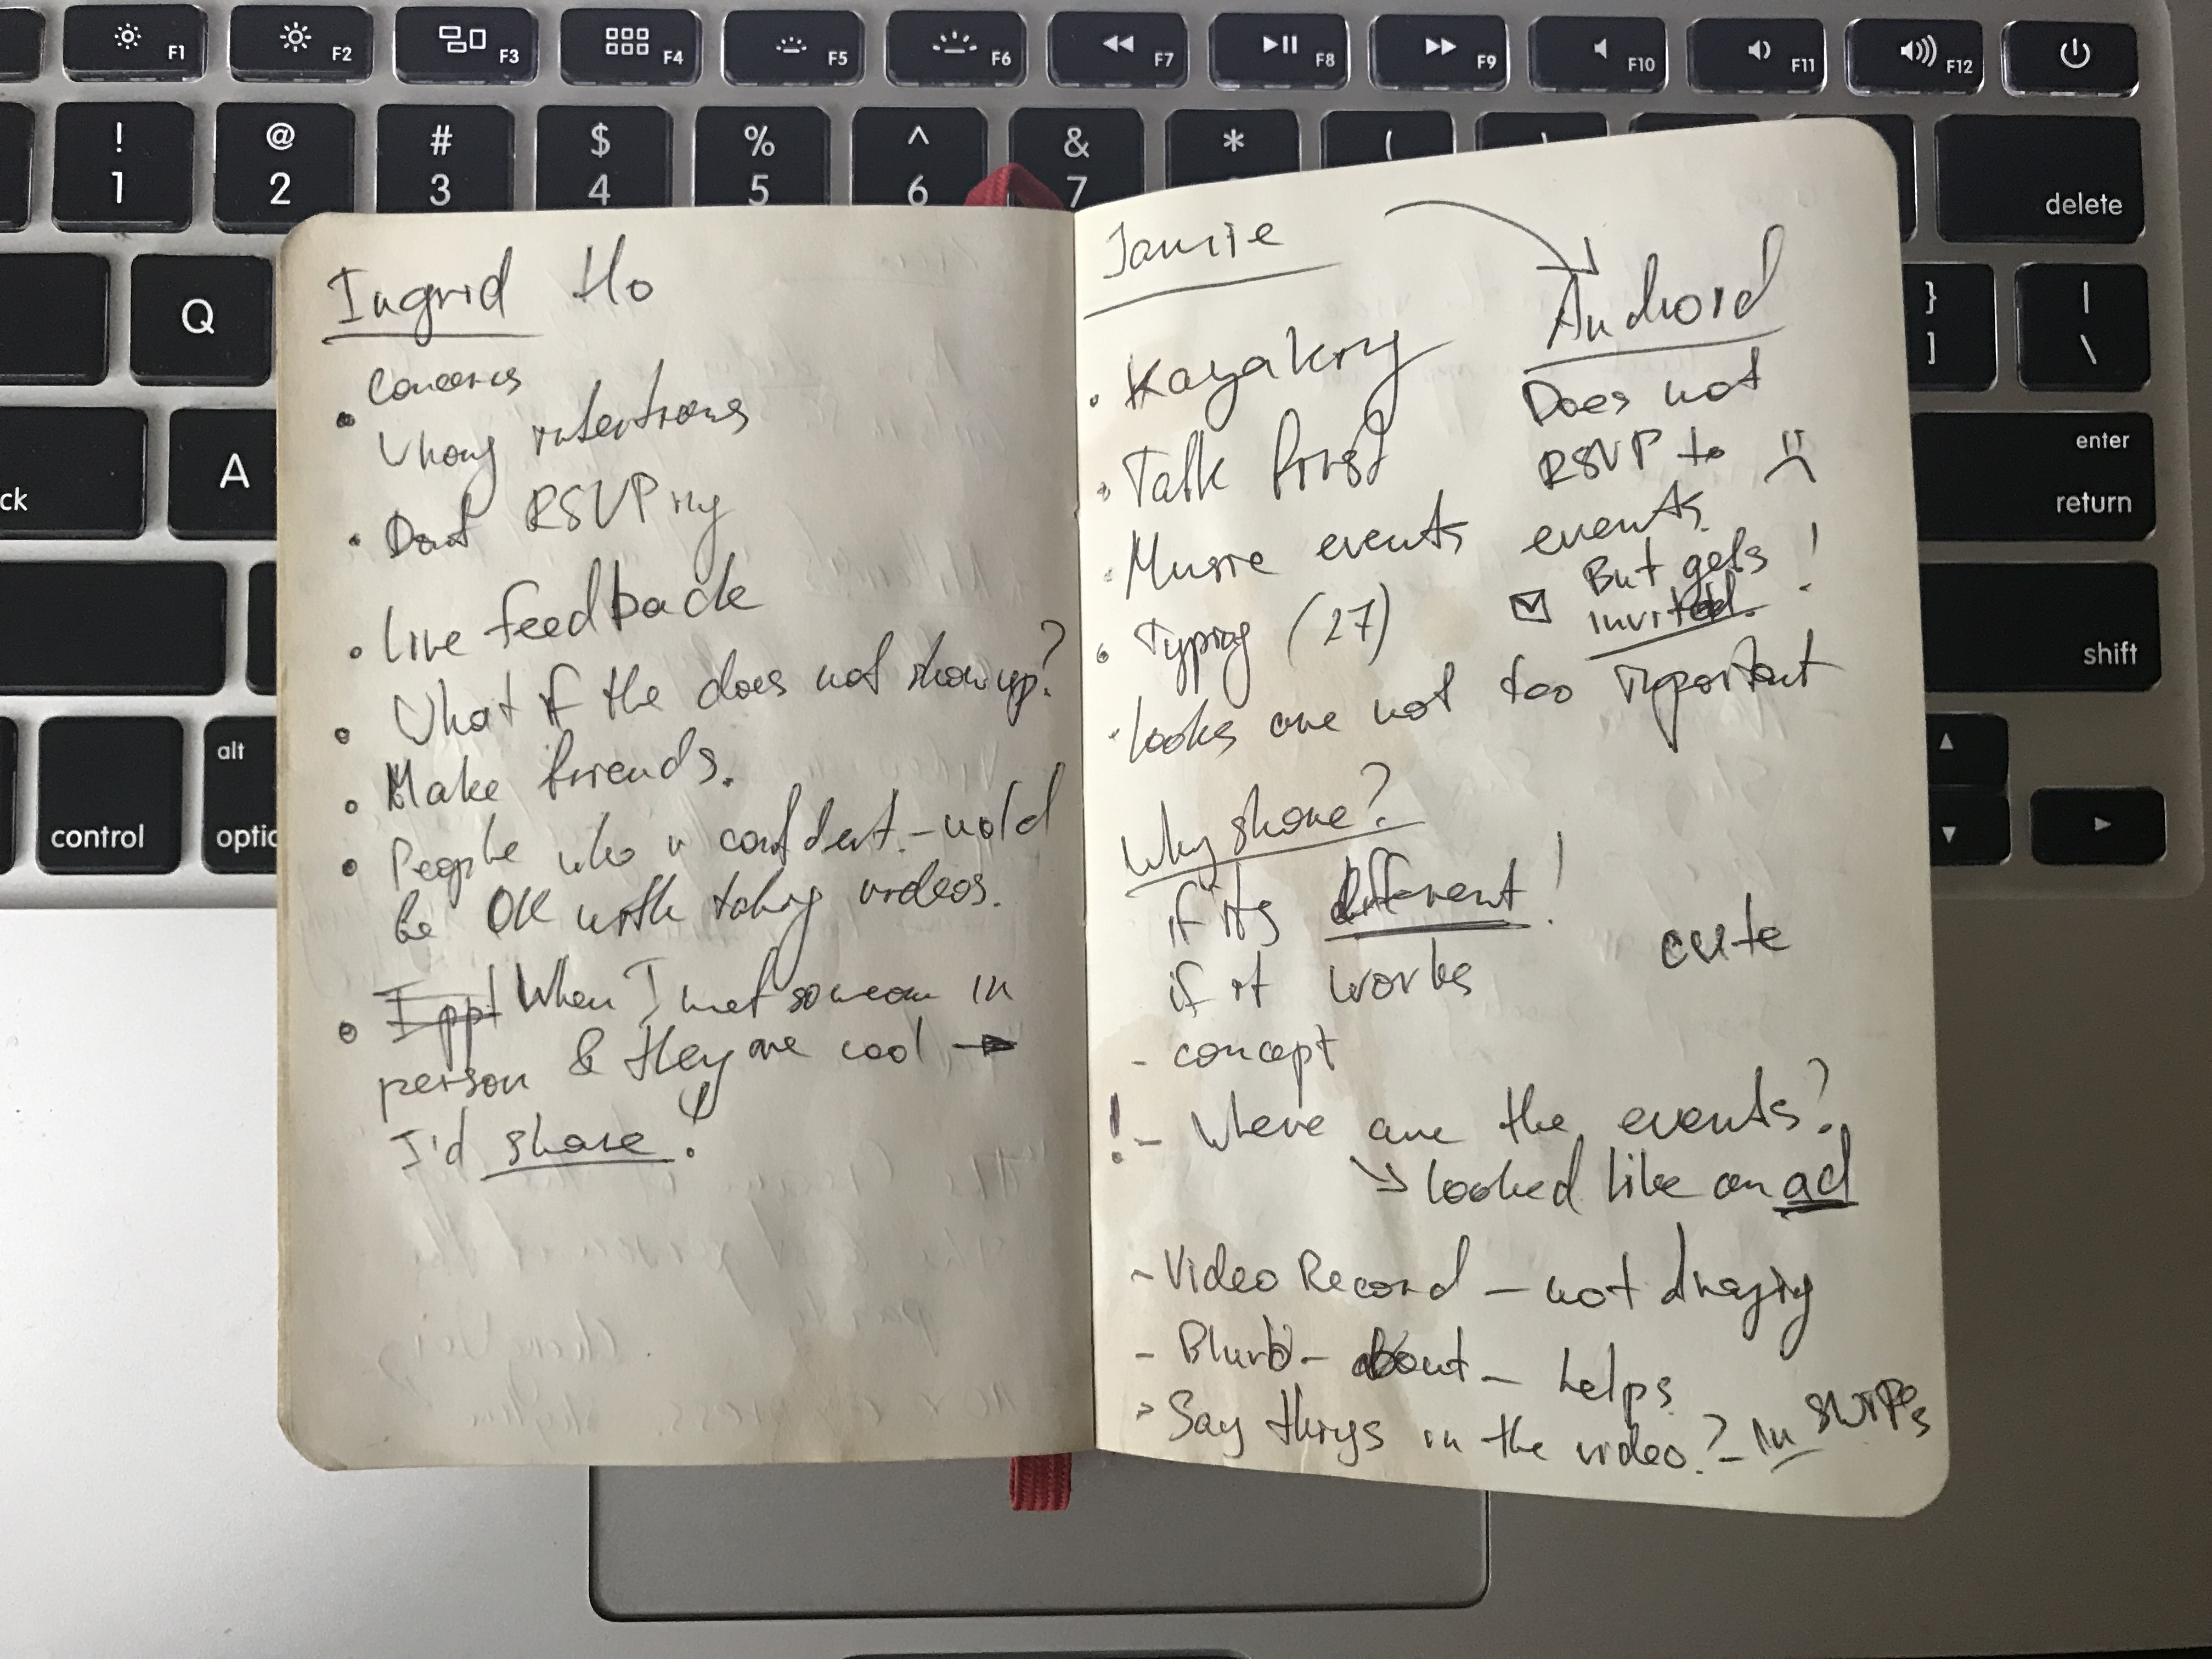 F1 F2 F3 F4 F5 F6 F7 F8 F9 F10 F11 F12
! @ # $ % ^ & * (
1 2 3 4 5 6 7
delete
Q
} |
] \
A
enter
return
ck
shift
alt
control
optic
Ingrid Ho
Concerns
Wrong intentions
Dont RSVPing
Live feedback
What if the does not show up?
Make friends.
People who r confident. – wold
be OK with taking videos.
When I met someon in
person & they are cool →
I'd share!
Jamie
Kayaking
Talk first
Music events
Typing (27)
Looks are not too important
Android
Does not
RSVP to
events
But gets !
invited.
Why share?
if its different!
if it works
cute
- concept
! - Where are the events?
looked like an ad
- Video Record – not
- Blurb – about – helps
Say things in the video? – In swipes